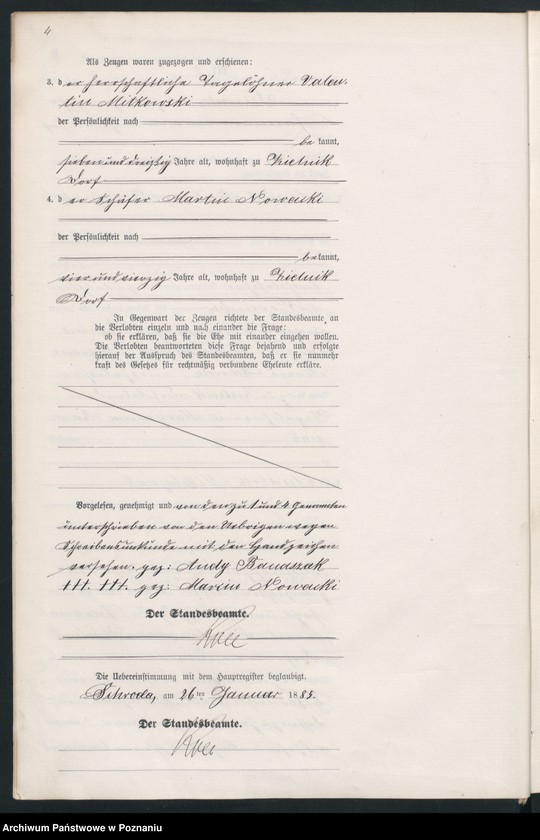 4
Als Zeugen waren zugezogen und erschienen:
3. der herrschaftliche Tagelöhner Valen-
tin Mitkowski
der Persönlichkeit nach
be kannt,
siebenunddreißig Jahre alt, wohnhaft zu Zielnik
Dorf
4. der Schäfer Martin Nowacki
der Persönlichkeit nach
bekannt,
vierundvierzig Jahre alt, wohnhaft zu Zielnik
Dorf
In Gegenwart der Zeugen richtete der Standesbeamte an
die Verlobten einzeln und nach einander die Frage:
ob sie erklären, daß sie die Ehe mit einander eingehen wollen.
Die Verlobten beantworteten diese Frage bejahend und erfolgte
hierauf der Ausspruch des Standesbeamten, daß er sie nunmehr
kraft des Gesetzes für rechtmäßig verbundene Eheleute erkläre.
Vorgelesen, genehmigt und von den zu 1 und 4 Genannten
unterschrieben von den Uebrigen wegen
Schreibensunkunde mit den Handzeichen
versehen. gez: Andy Banaszak
+++. +++. gez: Marcin Nowacki
Der Standesbeamte.
Die Uebereinstimmung mit dem Hauptregister beglaubigt.
Schroda, am 26ten Januar 1885.
Der Standesbeamte.
Archiwum Państwowe w Poznaniu